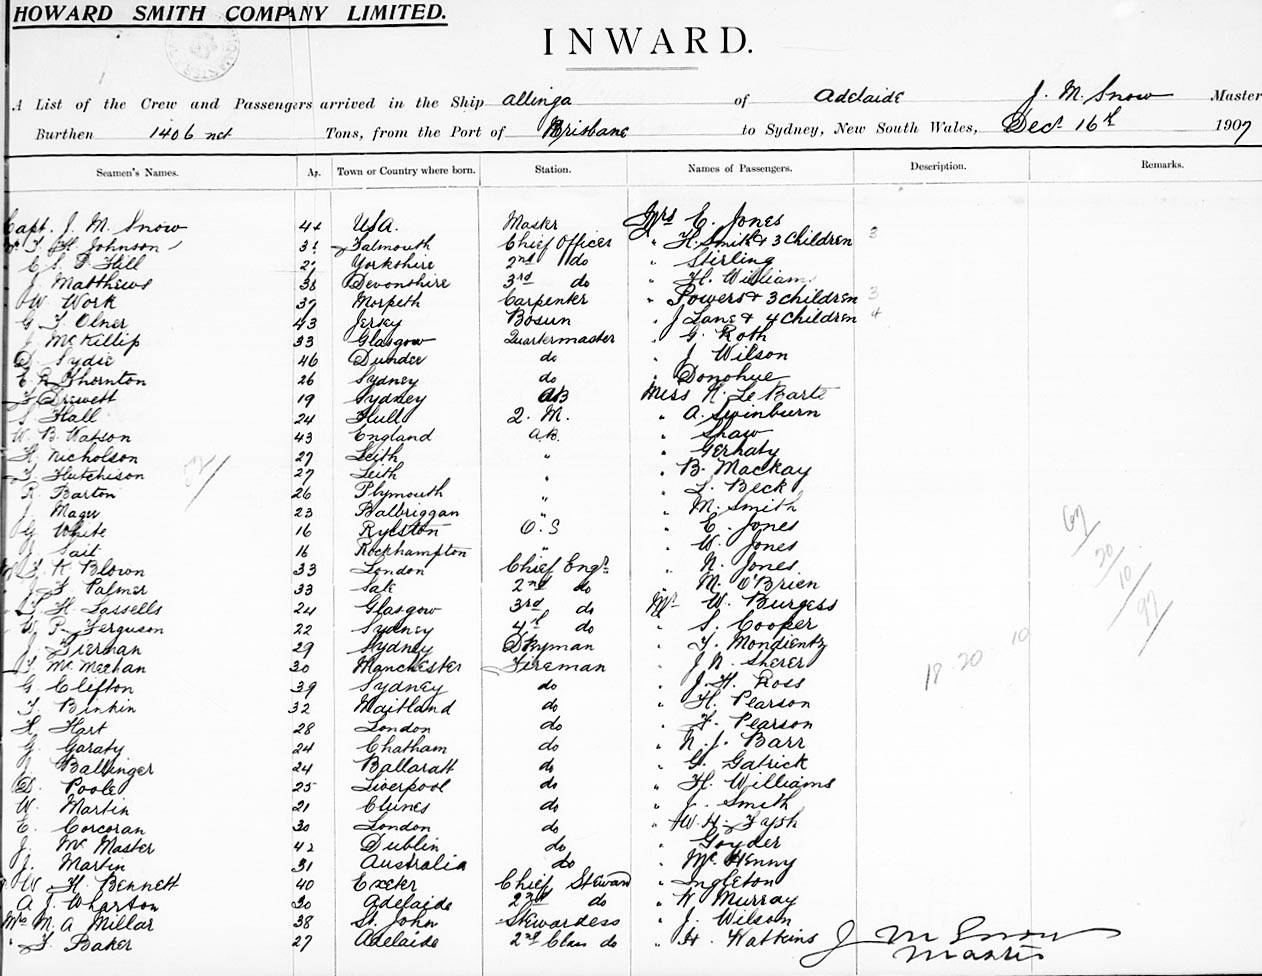 HOWARD SMITH COMPANY LIMITED.
INWARD.
A List of the Crew and Passengers arrived in the Ship Allinga of Adelaide J. M. Snow Master
Burthen 1406 net Tons, from the Port of Brisbane to Sydney, New South Wales, Dec. 16th 1907
Seamen's Names. Age. Town or Country where born. Station. Names of Passengers. Description. Remarks.
Capt. J. M. Snow 44 USA. Master Mrs E. Jones
H. Johnson Falmouth Chief Officer " H. Smith & 3 Children 3
Hill Yorkshire 2nd do " Stirling
J. Matthews 38 Devonshire 3rd do " H. Williams
W. Work 37 Morpeth Carpenter " Powers & 3 children 3
G. T. Olner 43 Jersey Bosun " J Lane & 4 Children 4
J. McKillip 33 Glasgow Quartermaster " G. Roth
D. Sydie 46 Dundee do " J Wilson
E. R. Thornton 26 Sydney do " Donohue
F. Drewett 19 Sydney AB Miss N. Le Barte
S. Hall 24 Hull Q. M. " A. Swinburn
W. B. Watson 43 England A.B. " Shaw
H. Nicholson 27 Leith " " Gerhaty
T. Hutchison 27 Leith " " B. Mackay
R. Barton 26 Plymouth " " L. Beck
J. Magee 23 Balbriggan " " M. Smith
G. White 16 Rylston O. S " E. Jones
J. Sait 16 Rockhampton " " W. Jones
K. Blown 33 London Chief Engr. " N. Jones
J. F. Palmer 33 Sale 2nd do " M. O'Brien
H. Lassells 24 Glasgow 3rd do Mr W. Burgess
W. P. Ferguson 22 Sydney 4th do " S. Cooper
J. Tierman 29 Sydney Dkyman " T. Mondientz
T. McMeehan 30 Manchester Fireman " J. N. Sherer
G. Clifton 39 Sydney do " J. H. Ross
T. Binkin 32 Maitland do " H. Pearson
H. Hart 28 London do " F. Pearson
G. Garaty 24 Chatham do " N. J. Barr
J. Ballinger 24 Ballaratt do " G. Gatrick
D. Poole 25 Liverpool do " H. Williams
W. Martin 21 Clunes do " J. Smith
C. Corcoran 30 London do " W. H. Fysh
J. McMaster 42 Dublin do " Goyder
J. Martin 31 Australia do " McHenny
W. H. Bennett 40 Exeter Chief Steward " Ingleton
A. J. Wharton 30 Adelaide 2nd do " W Murray
Mrs M. A Millar 38 St. John Stewardess " J. Wilson
" F. Baker 27 Adelaide 2nd Class do " H. Watkins
J M Snow
Master
67
20
10
97
18 20 10